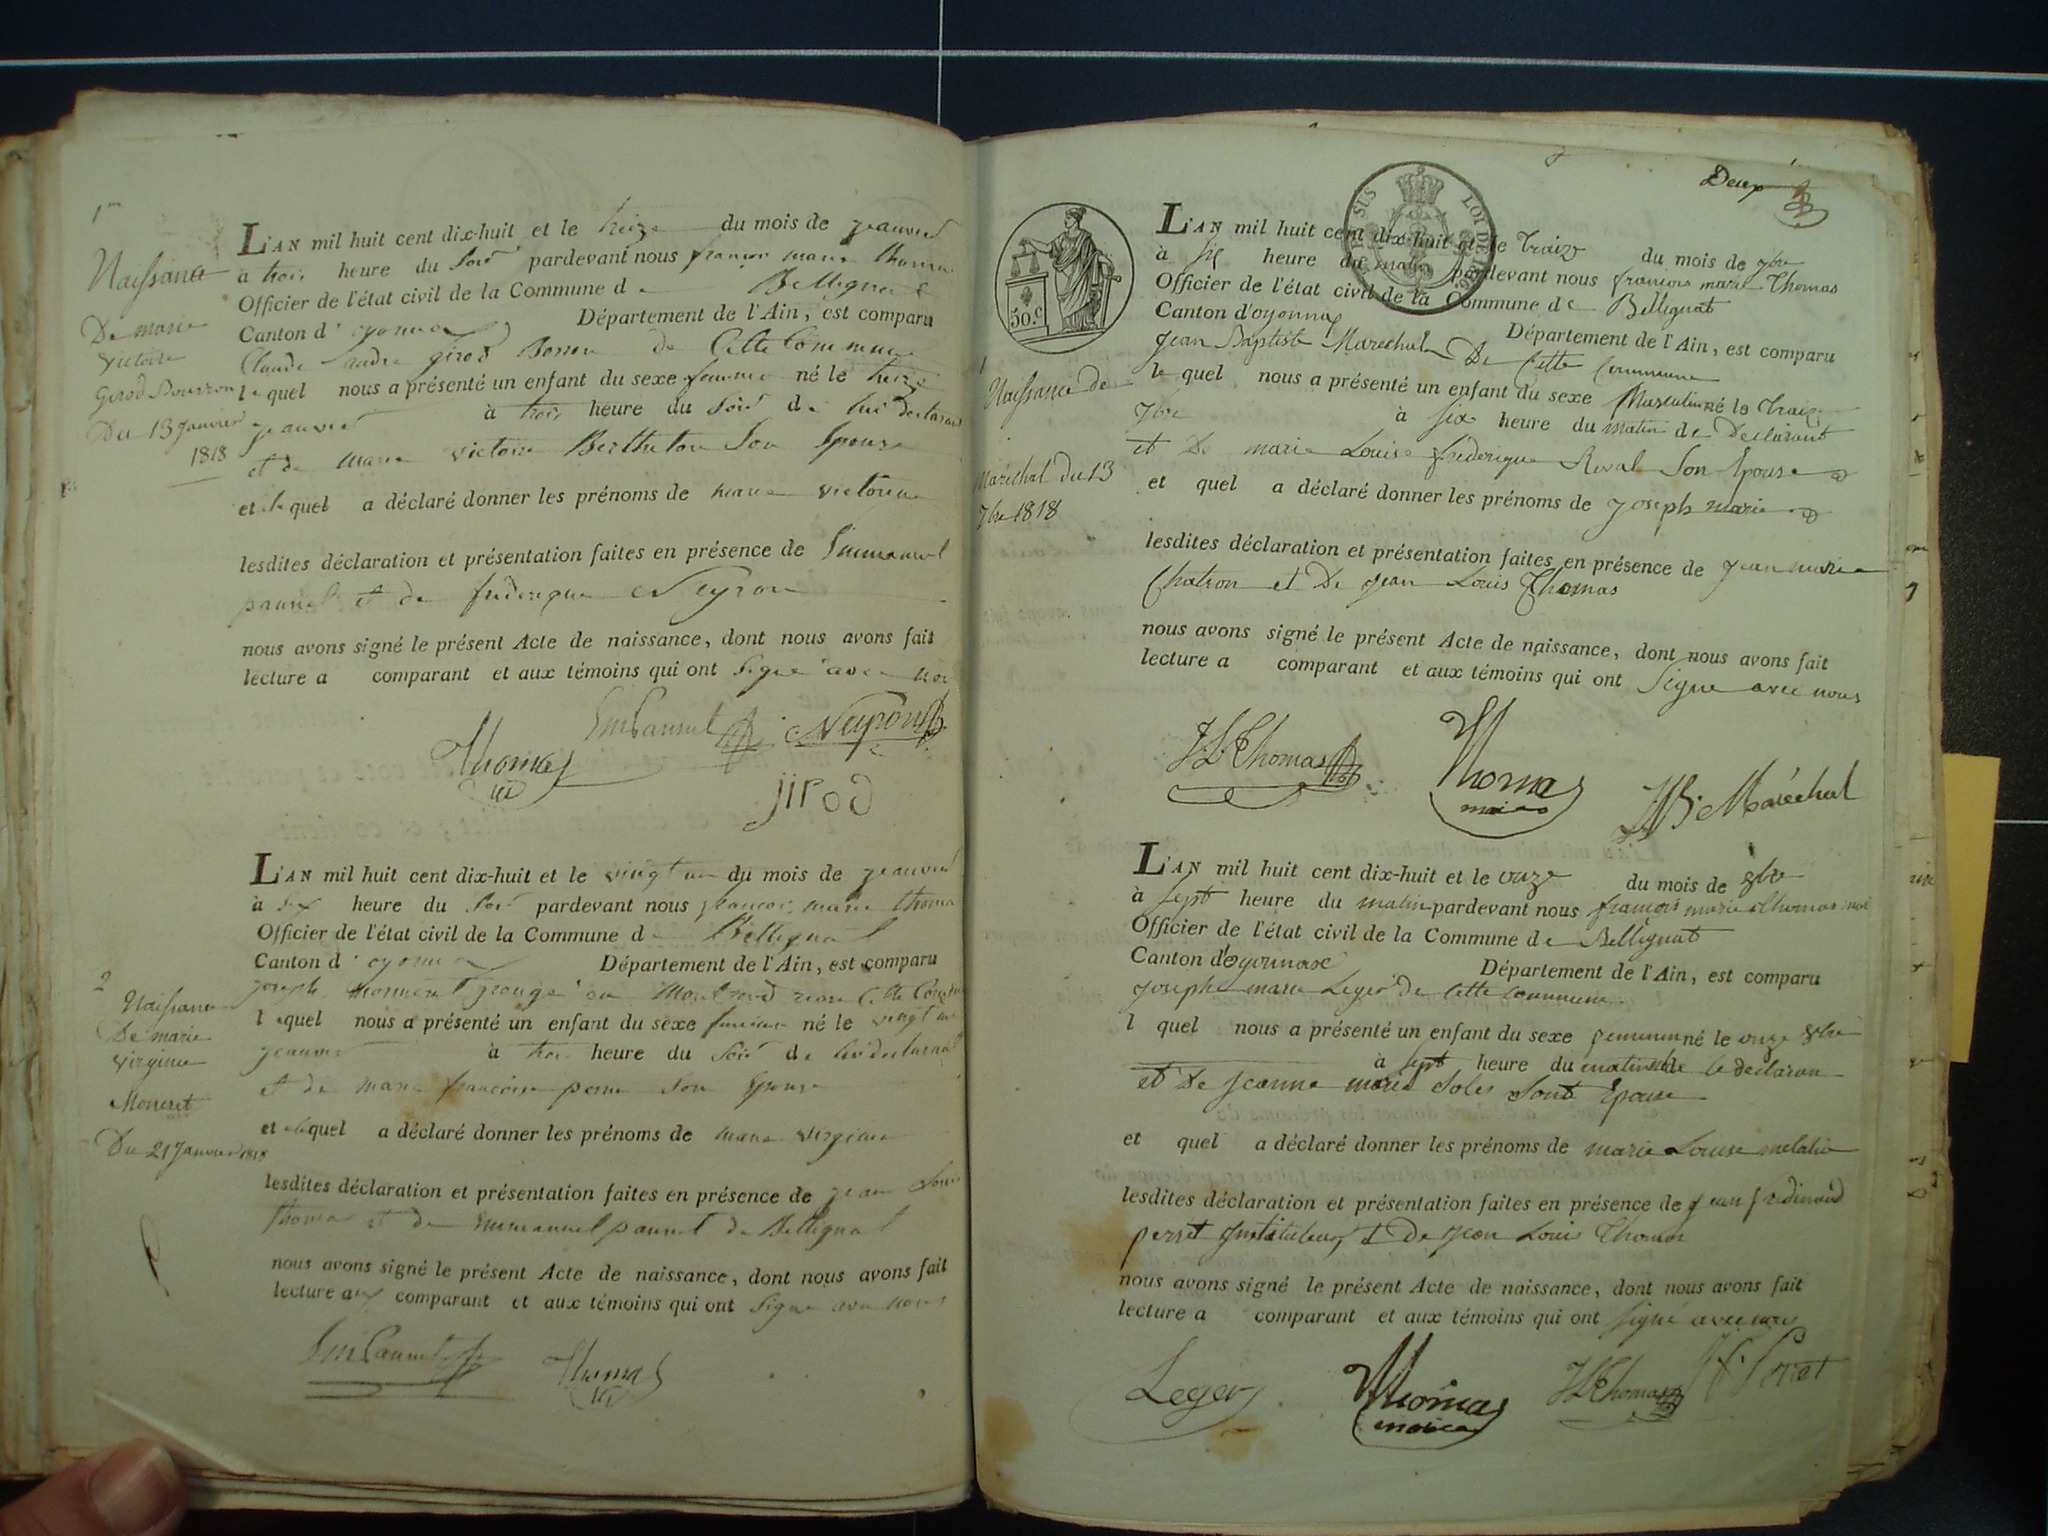 1er
Naissance
De marie
victoire
Girod Bourron
Du 13 Janvier
1818
L'AN mil huit cent dix-huit et le treize du mois de jeanvier
à trois heure du soir pardevant nous françois marie thomas
Officier de l'état civil de la Commune d e Bellignat
Canton d' oyonnax Département de l'Ain, est comparu
Claude girod de Cette Commune
lequel nous a présenté un enfant du sexe né le treize
jeanvier à trois heure du soir de lui declarant
et de marie victoire Son Epouse
et lequel a déclaré donner les prénoms de marie
lesdites déclaration et présentation faites en présence de Emmanuel
pannet et de frederique Neyron
nous avons signé le présent Acte de naissance, dont nous avons fait
lecture a comparant et aux témoins qui ont signé avec nous
EmPannet Neyron
Thomas
jirod
2
Naissance
De marie
virginie
Moneret
Du 21 Janvier 1818
L'AN mil huit cent dix-huit et le vingt un du mois de jeanvier
à six heure du soir pardevant nous françois marie thomas
Officier de l'état civil de la Commune d e Bellignat
Canton d' oyonnax Département de l'Ain, est comparu
joseph Cette Commune
lequel nous a présenté un enfant du sexe né le vingt un
jeanvier à trois heure du soir de lui declarant
et de marie françoise son Epouse
et lequel a déclaré donner les prénoms de marie virginie
lesdites déclaration et présentation faites en présence de jean Louis
thomas et de Emmanuel pannet de Bellignat
nous avons signé le présent Acte de naissance, dont nous avons fait
lecture aux comparant et aux témoins qui ont signé avec nous
EmPannet Thomas
Deux
50.c
SUS LOI DE
Naissance de
Maréchal du 13
7bre 1818
L'AN mil huit cent dix-huit et le traize du mois de 7bre
à six heure du matin pardevant nous francois marie Thomas
Officier de l'état civil de la Commune de Bellignat
Canton d'oyonnax Département de l'Ain, est comparu
Jean Baptiste Marechal De Cette Commune
le quel nous a présenté un enfant du sexe Masculin né le traize
7bre à six heure du matin de Declarant
et De marie Louise frederique Reval Son Epouse
et quel a déclaré donner les prénoms de joseph marie
lesdites déclaration et présentation faites en présence de jean marie
Chatron et De jean Louis Thomas
nous avons signé le présent Acte de naissance, dont nous avons fait
lecture a comparant et aux témoins qui ont Signe avec nous
JL Thomas Thomas
maire
JB Maréchal
L'AN mil huit cent dix-huit et le onze du mois de
à sept heure du matin pardevant nous françois marie thomas
Officier de l'état civil de la Commune de Bellignat
Canton d'oyonnax Département de l'Ain, est comparu
joseph marie Leger de Cette commune
l quel nous a présenté un enfant du sexe feminin né le onze
à sept heure du matin de le declaran
et De jeanne marie Epouse
et quel a déclaré donner les prénoms de marie Louise melanie
lesdites déclaration et présentation faites en présence de jean
perret Instituteur et De jean Louis Thomas
nous avons signé le présent Acte de naissance, dont nous avons fait
lecture a comparant et aux témoins qui ont signé avec nous
Leger Thomas JL Thomas Perret
maire